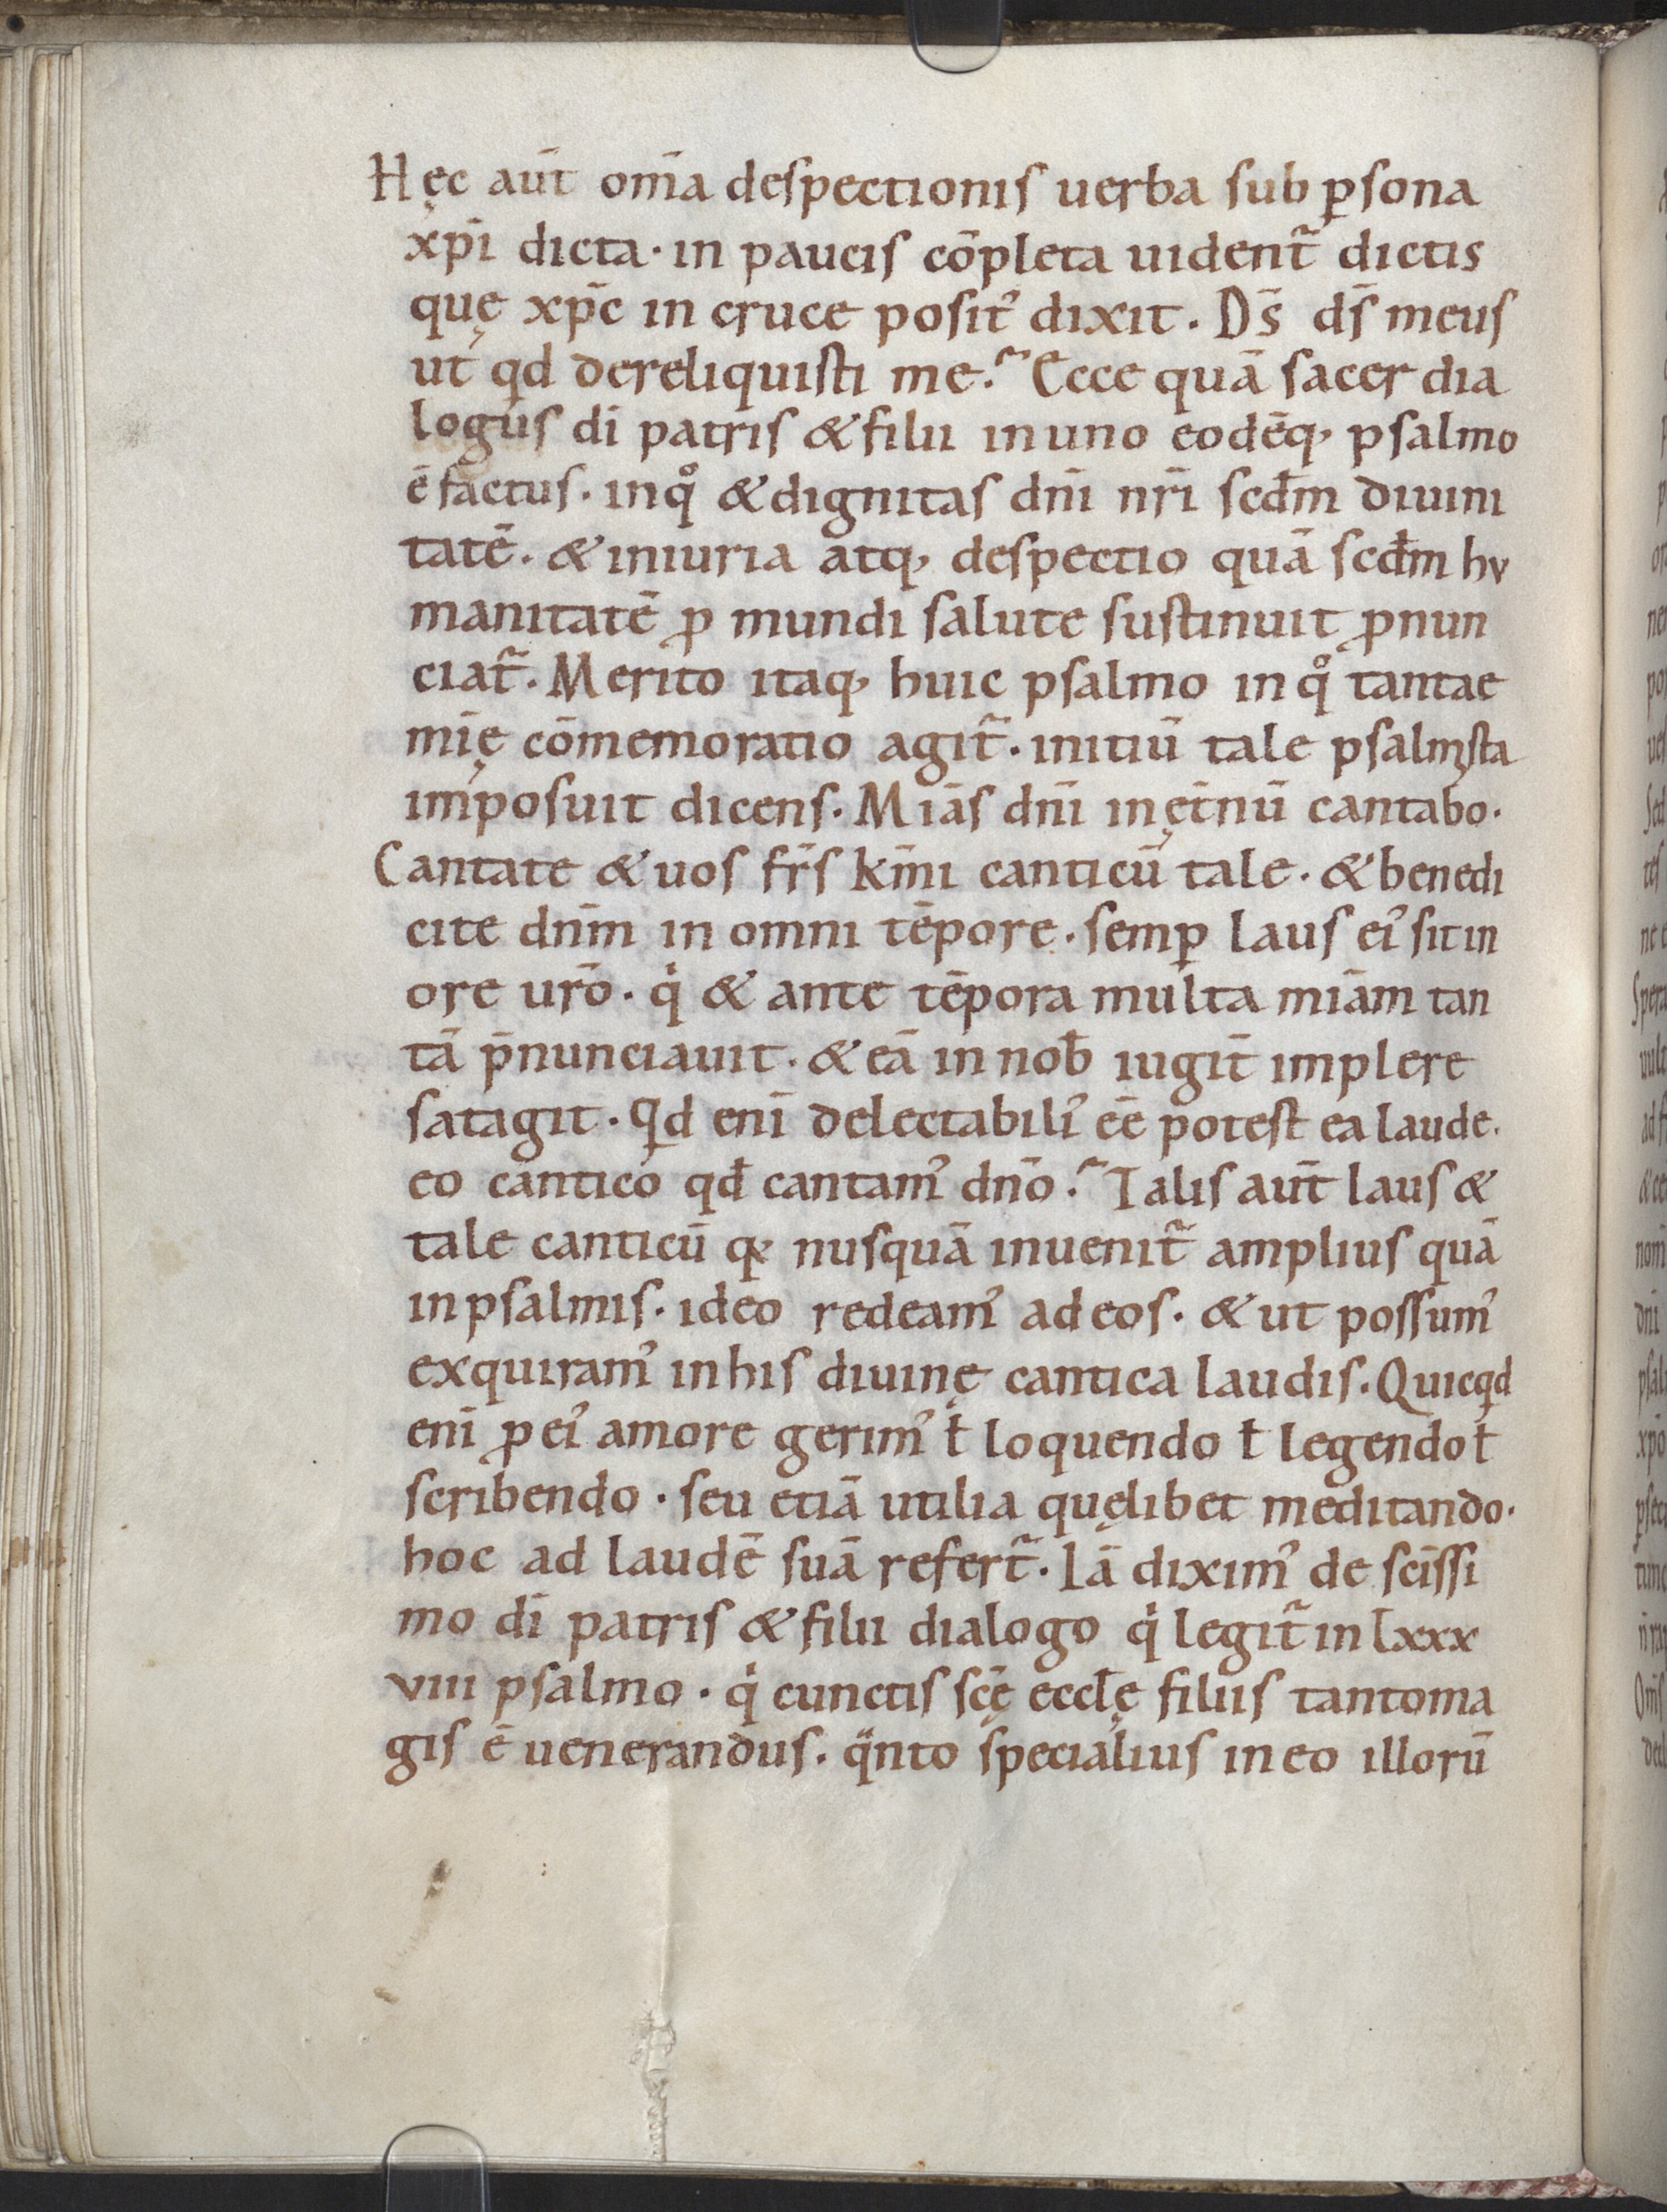 Hęc aut̄ om̄a despectionis uerba sub ꝑsona
xp̄i dicta · in paucis cōpleta uident᷑ dictis
quę xp̄c in cruce posit᾿ dixit . Ds̄ ds̄ meus
ut qd dereliquisti me .᷑ Ecce quā sacer dia
logus dī patris & filii in uno eodēq, psalmo
ē factus . in qͦ & dignitas dn̄i nr̄i scd̄m diuini
tatē . & iniuria atq, despectio quā scd̄m hu
manitatē ꝓ mundi salute sustinuit ꝓnun
ciat᷑ . Merito itaq, huic psalmo in qͦ tantae
mīę cōmemoratio agit᷑ . initiū tale psalmista
imposuit dicens . Mīas dn̄i in ęt̄nū cantabo .
Cantate & uos fr̄s km̄i canticū tale . & benedi
cite dn̄m in omni tēpore . semꝑ laus ei᾿ sit in
ore ur̄o . qͥ & ante tēpora multa mīam tan
tā p̄nunciauit . & eā in nob̄ iugit̄ implere
satagit . Qͥd enī delectabili᾿ eē potest ea laude .
eo cantico qd̄ cantam᾿ dn̄o .᷑ Talis aut̄ laus &
tale canticū qꝫ nusquā inuenit᷑ amplius quā
in psalmis . ideo redeam᾿ ad eos . & ut possum᾿
exquiram᾿ in his diuinę cantica laudis . Quicqͥd
enī ꝓ ei᾿ amore gerim᾿ ł loquendo ł legendo ł
scribendo . seu etiā utilia quęlibet meditando .
hoc ad laudē suā refert᷑ . Iā dixim᾿ de sc̄issi
mo dī patris & filii dialogo qͥ legit᷑ in lxxx
viii psalmo . qͥ cunctis sc̄ę eccl̄ę filiis tanto ma
gis ē uenerandus . qͣnto specialius in eo illorū